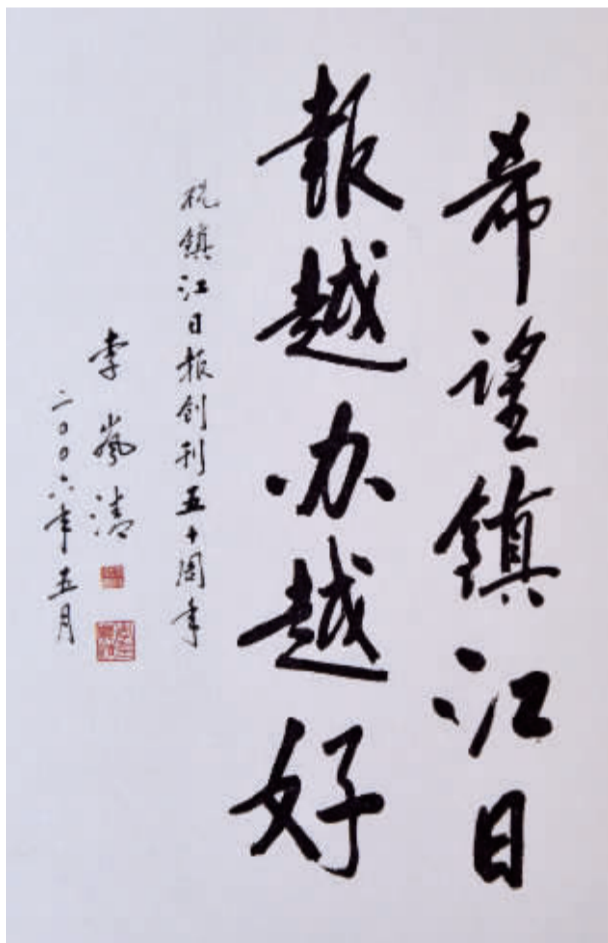 希望鎮江日
報越办越好
祝鎮江日报创刊五十周年
李岚清
二〇〇六年五月